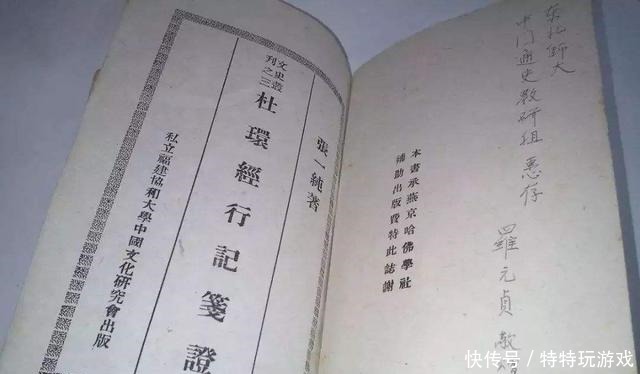 东北師大
中门通史教研组 惠存
羅元貞 敬
本書承燕京哈佛學社
補助出版費特此誌謝
張一純著
文史叢
刊之三
杜環經行記箋證
私立福建協和大學中國文化研究會出版
快传号 / 特特玩游戏